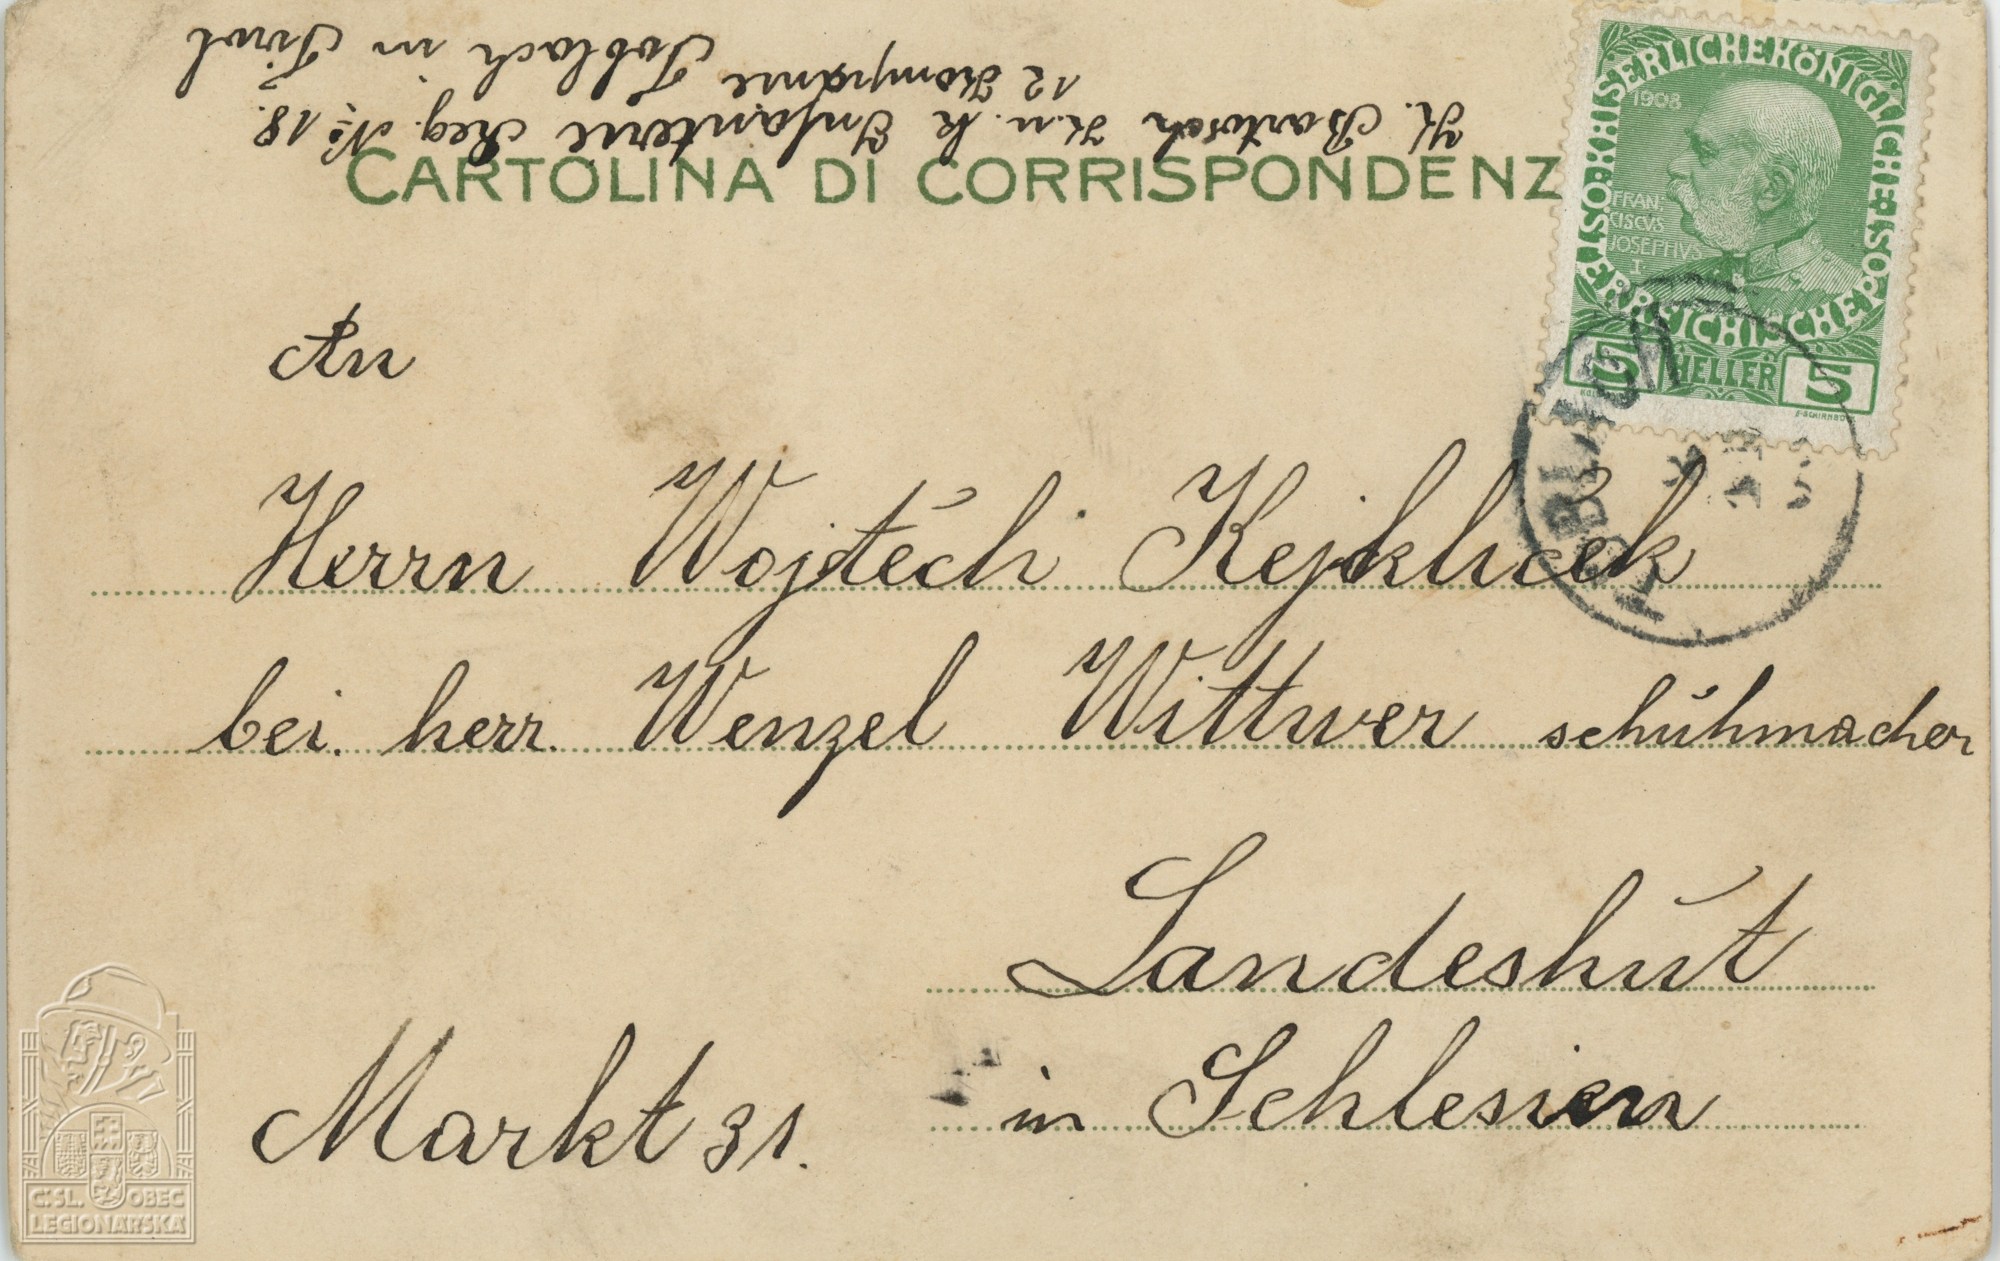 K. Bartosch K. u. k. Infanterie Reg. No 18.
12 Kompanie Toblach in Tirol
CARTOLINA DI CORRISPONDENZ
KAISERLICHEKÖNIGLICHE
ÖSTERREICHISCHE POST
1908
FRAN-
CISCVS
JOSEPHVS
I
5 HELLER 5
TOBLACH
An
Herrn Wojtěch Kejklicěk
bei. herr. Wenzel Wittwer schuhmacher
Landeshut
Markt 31. in Schlesien
Č.SL. OBEC
LEGIONÁŘSKÁ